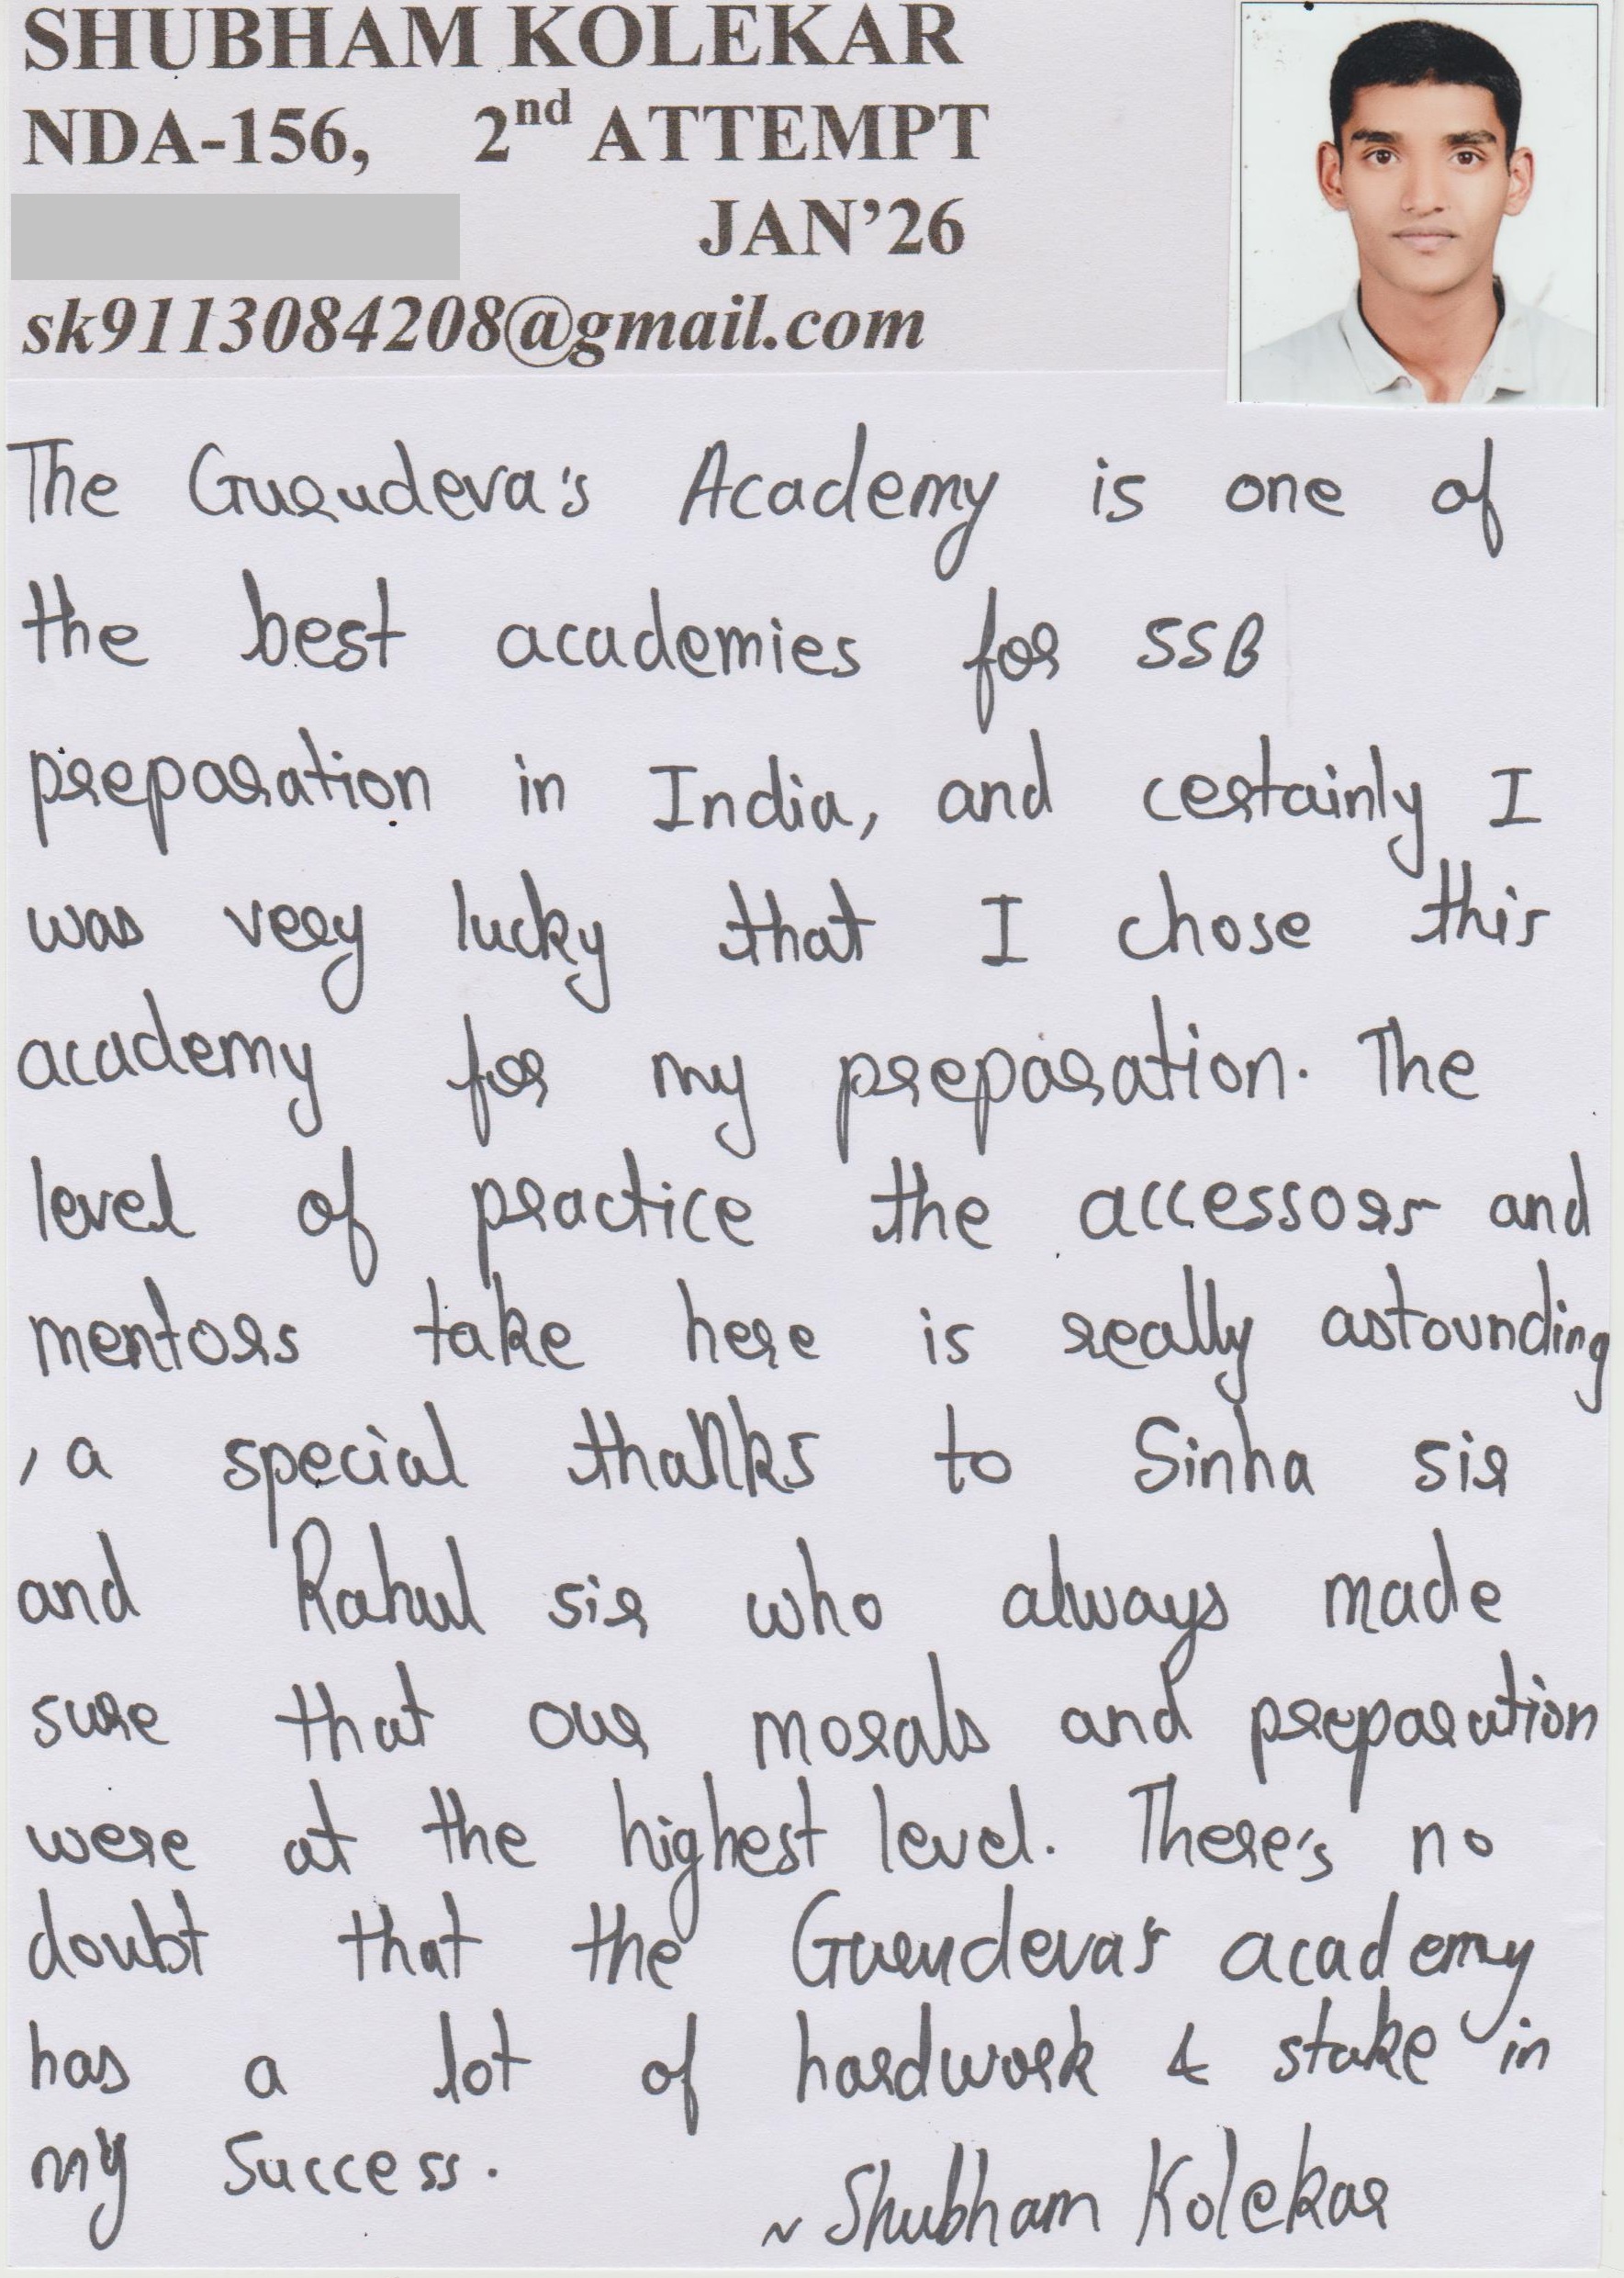 SHUBHAM KOLEKAR
NDA-156, 2nd ATTEMPT
JAN'26
sk9113084208@gmail.com
The Gurudeva's Academy is one of
the best academies for SSB
preparation in India, and certainly I
was very lucky that I chose this
academy for my preparation. The
level of practice the accessors and
mentors take here is really astounding
, a special thanks to Sinha sir
and Rahul sir who always made
sure that our morals and preparation
were at the highest level. There's no
doubt that the Gurudeva's academy
has a lot of hardwork & stake in
my success.
~ Shubham Kolekar